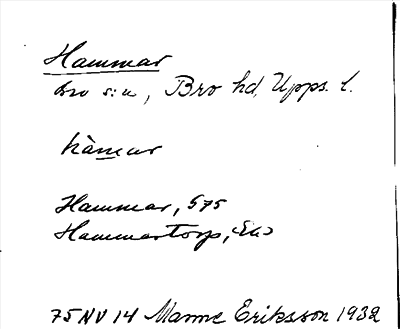 Hammar
Bro s:n, Bro hd, Upps. l.
hàmar
Hammar, S75
Hammartorp,
75 NV 14 Manne Eriksson 1932